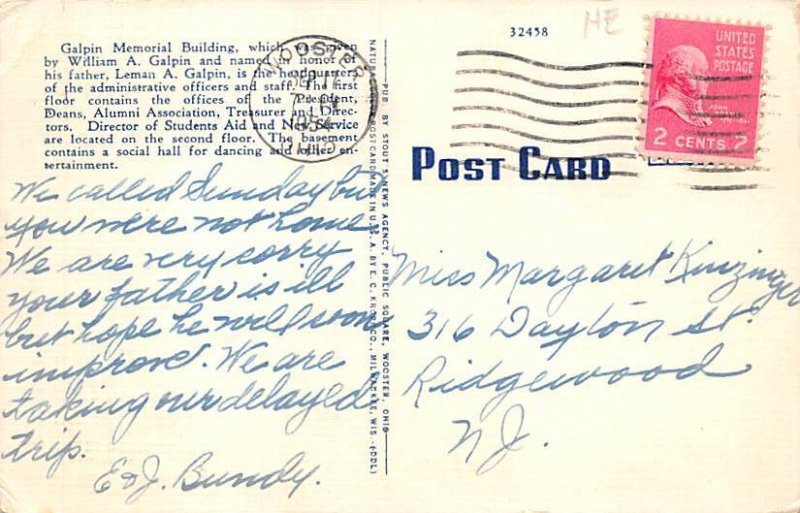 Galpin Memorial Building, which was given
by William A. Galpin and named in honor of
his father, Leman A. Galpin, is the headquarters
of the administrative officers and staff. The first
floor contains the offices of the President,
Deans, Alumni Association, Treasurer and Direc-
tors. Director of Students Aid and News Service
are located on the second floor. The basement
contains a social hall for dancing and other en-
tertainment.
We called Sunday but
you were not home
We are very corry
your father is ill
but hope he will soon
improve. We are
taking our delayed
trip.
E & J. Bundy.
PUB. BY STOUT'S NEWS AGENCY, PUBLIC SQUARE, WOOSTER, OHIO
POSTCARD MADE IN U.S.A. BY E. C. KROPP CO., MILWAUKEE, WIS. (DDL)
WOOSTER
OHIO
32458
NE
UNITED
STATES
POSTAGE
JOHN
2 CENTS 2
POST CARD
Miss Margaret Kinzinger
316 Dayton St.
Ridgewood
N.J.